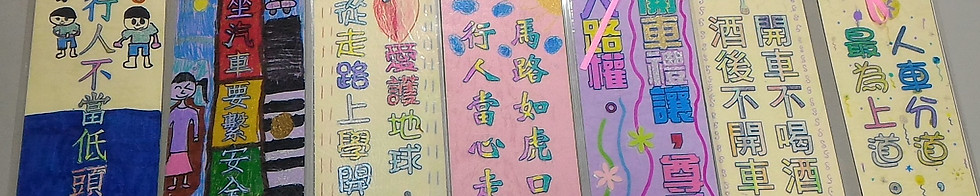 行人不當低頭
坐汽車要繫安全
愛護地球，
從走路上學開
馬路如虎口
行人當心走
開車禮讓，尊
人路權。
開車不喝酒
酒後不開車
人車分道
最為上道